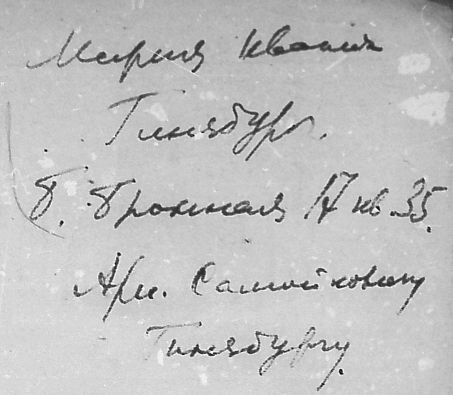 Мария Ивановна
Гинзбург.
Б. Бронная 17 кв. 35.
Арк. Самойловичу
Гинзбургу.